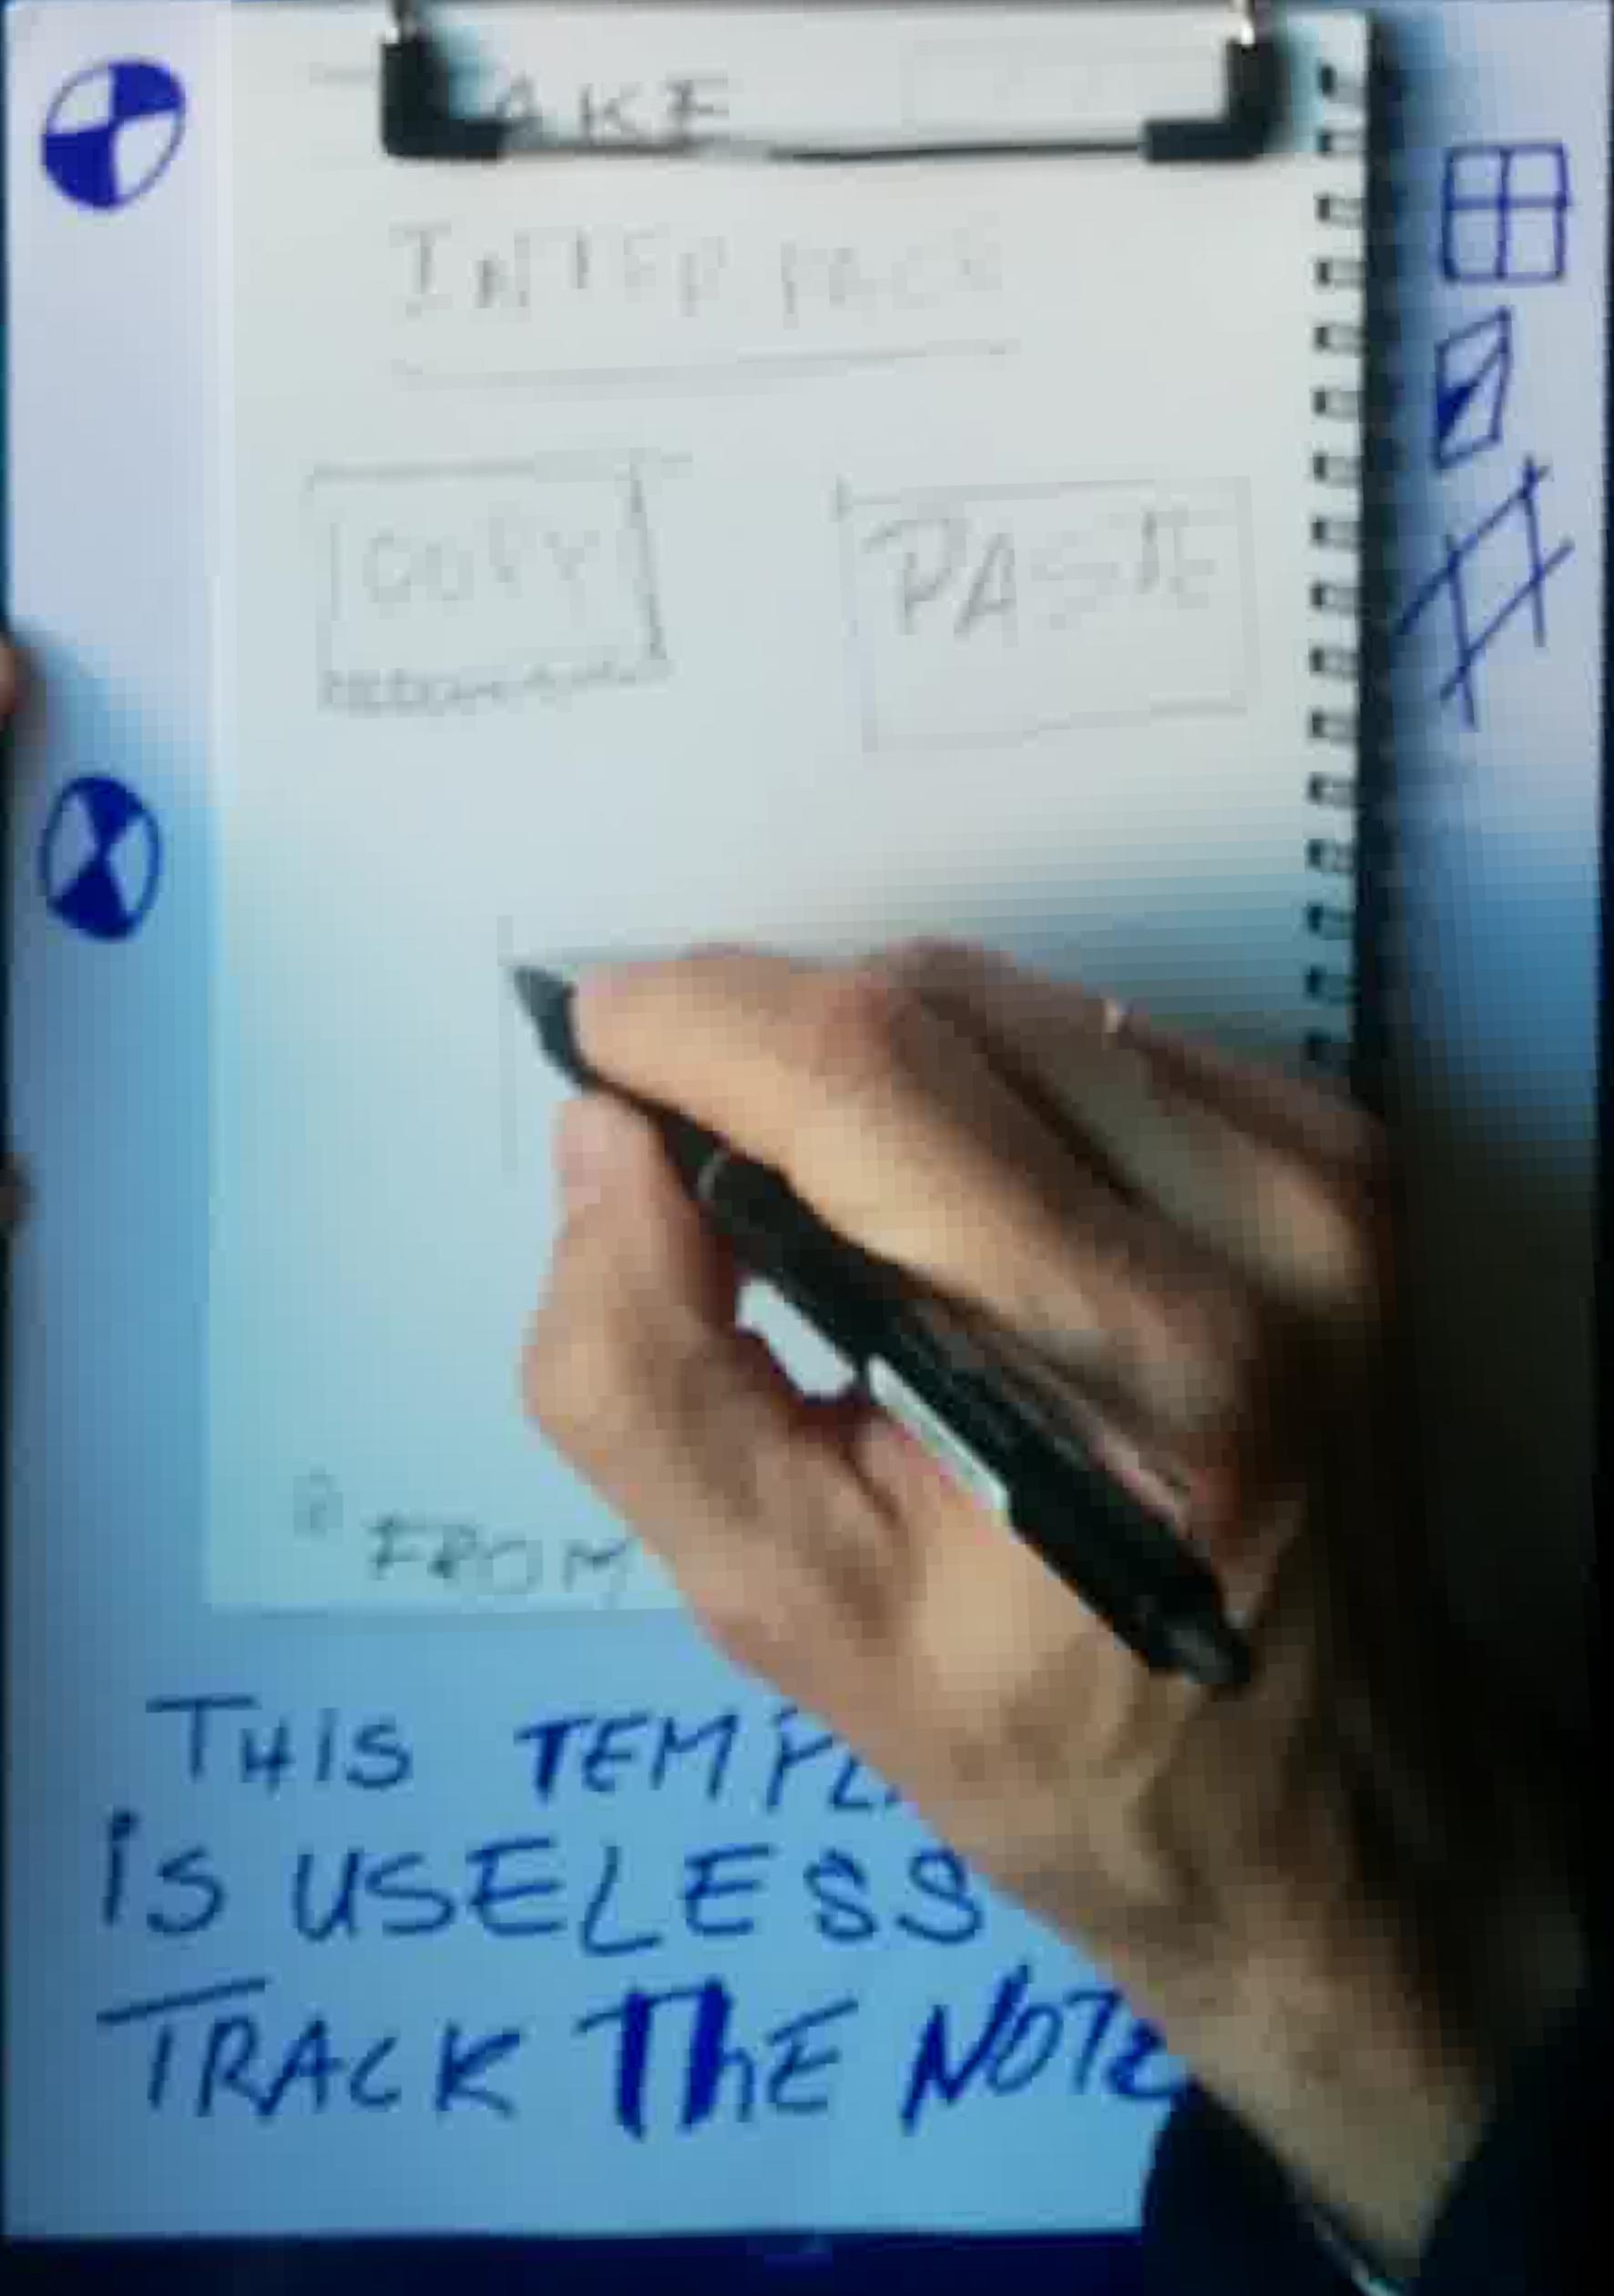 INTERFACE
COPY PASTE
FROM
THIS TEMPL
is USELESS
TRACK ThE NOTE